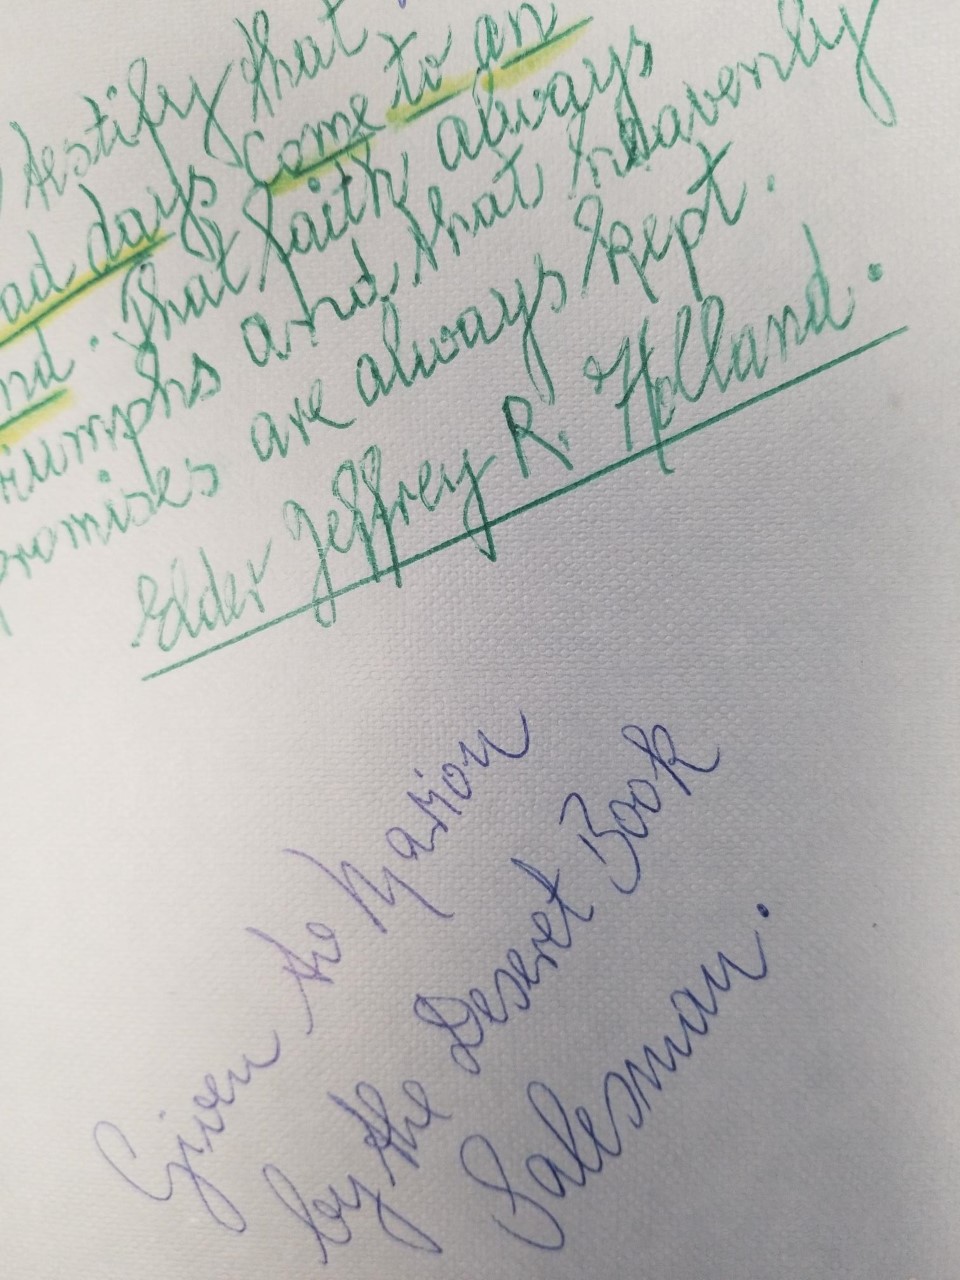 testify that
ad days come to an
nd. That faith always
riumphs and that heavenly
promises are always kept.
Elder Jeffrey R. Holland.
Given to Marion
by the Deseret Book
Salesman.